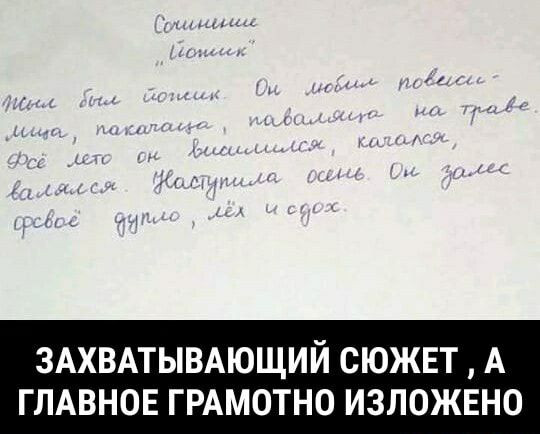 Сочинение
„Йожик"
Жыл был йожик. Он любил повеси-
лица, пакачаца, паваляца на траве.
Фсё лето он висилился, качался,
валялся. Наступила осень. Он залес
фсваё дупло, лёх и сдох.
ЗАХВАТЫВАЮЩИЙ СЮЖЕТ , А
ГЛАВНОЕ ГРАМОТНО ИЗЛОЖЕНО